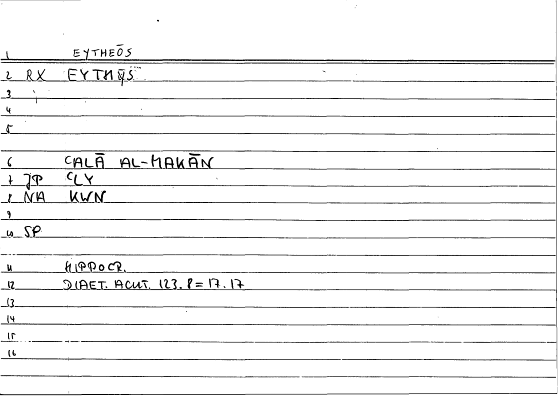 1 EYTHEŌS
2 RX EYTHY̆S
3
4
5
6 ʿALĀ AL-MAKĀN
7 JP ʿLY
8 NA KWN
9
10 SP
11 HIPPOCR.
12 DIAET. ACUT. 123.8 = 17.17
13
14
15
16